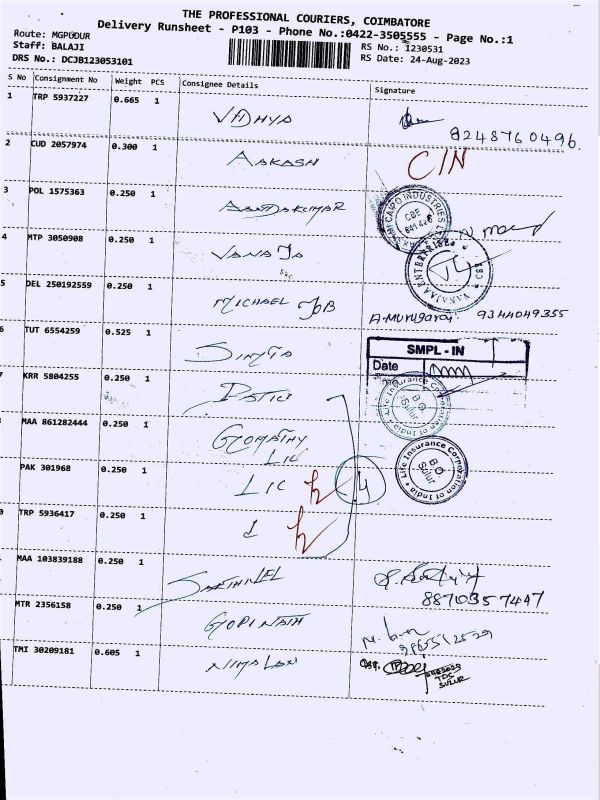 THE PROFESSIONAL COURIERS, COIMBATORE
Delivery Runsheet - P103 - Phone No.:0422-3505555 - Page No.:1
Route: MGPUDUR
Staff: BALAJI
DRS No.: DCJB123053101
RS No.: 1230531
RS Date: 24-Aug-2023
S No Consignment No Weight PCS Consignee Details Signature
1 TRP 5937227 0.665 1 VIDHYA 8248760496.
2 CUD 2057974 0.300 1 AAKASH CIN
3 POL 1575363 0.250 1 ANANDAKUMAR
4 MTP 3050908 0.250 1 VANAJA
5 DEL 250192559 0.250 1 MICHAEL JOB A.Murugaraj. 9344049355
6 TUT 6554259 0.525 1 SMPL - IN
Date
7 KRR 5804255 0.250 1
MAA 861282444 0.250 1 GOMATHY
LIC
PAK 301968 0.250 1 LIC 4
Life Insurance Corporation of India
B.O.
Sulur
0 TRP 5936417 0.250 1
MAA 103839188 0.250 1 SAKTHIVEL 8870357447
MTR 2356158 0.250 1 GOPINATH
TMI 30209181 0.605 1 NIMALAN
TDC
SULUR